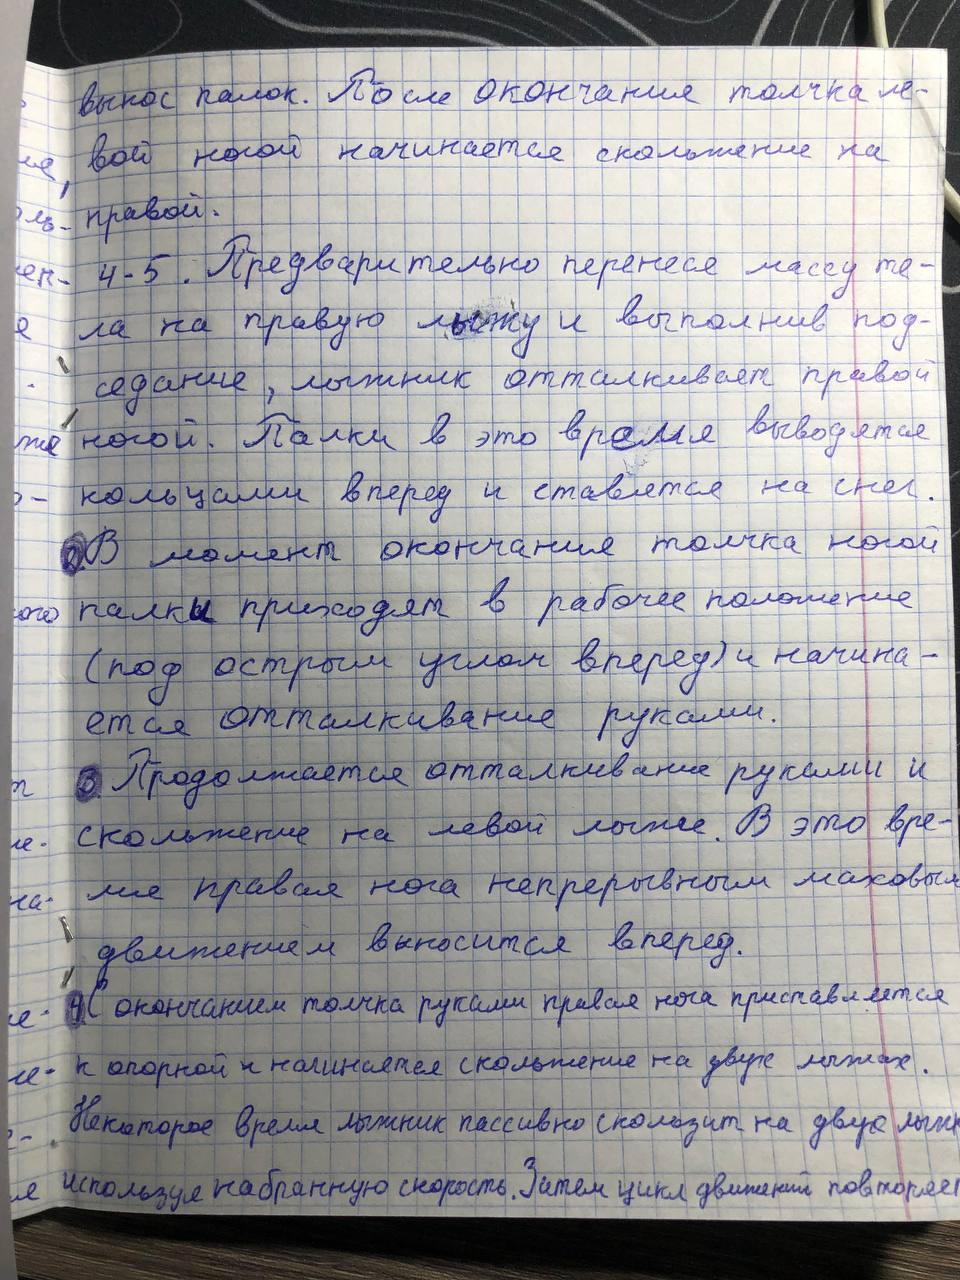 вынос палок. После окончание толчка ле-
вой ногой начинается скольжение на
правой.
4-5. Предварительно перенеся массу те-
ла на правую лыжу и выполнив под-
седание, лыжник отталкивает правой
ногой. Палки в это время выводятся
кольцами вперед и ставятся на снег.
2. В момент окончания толчка ногой
палки приходят в рабочее положение
(под острым углом вперед) и начина-
ется отталкивание руками.
3. Продолжается отталкивание руками и
скольжение на левой лыже. В это вре-
мя правая нога непрерывным маховым
движением выносится вперед.
4. С окончанием толчка руками правая нога приставляется
к опорной и начинается скольжение на двух лыжах.
Некоторое время лыжник пассивно скользит на двух лыж
используя набранную скорость. Затем цикл движений повторяет